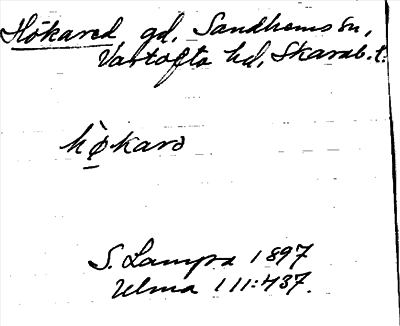 Hökared gd, Sandhems sn,
Vartofta hd, Skarab. t.
hø̀karə
S. Lampa 1897
Ulma 111:437.